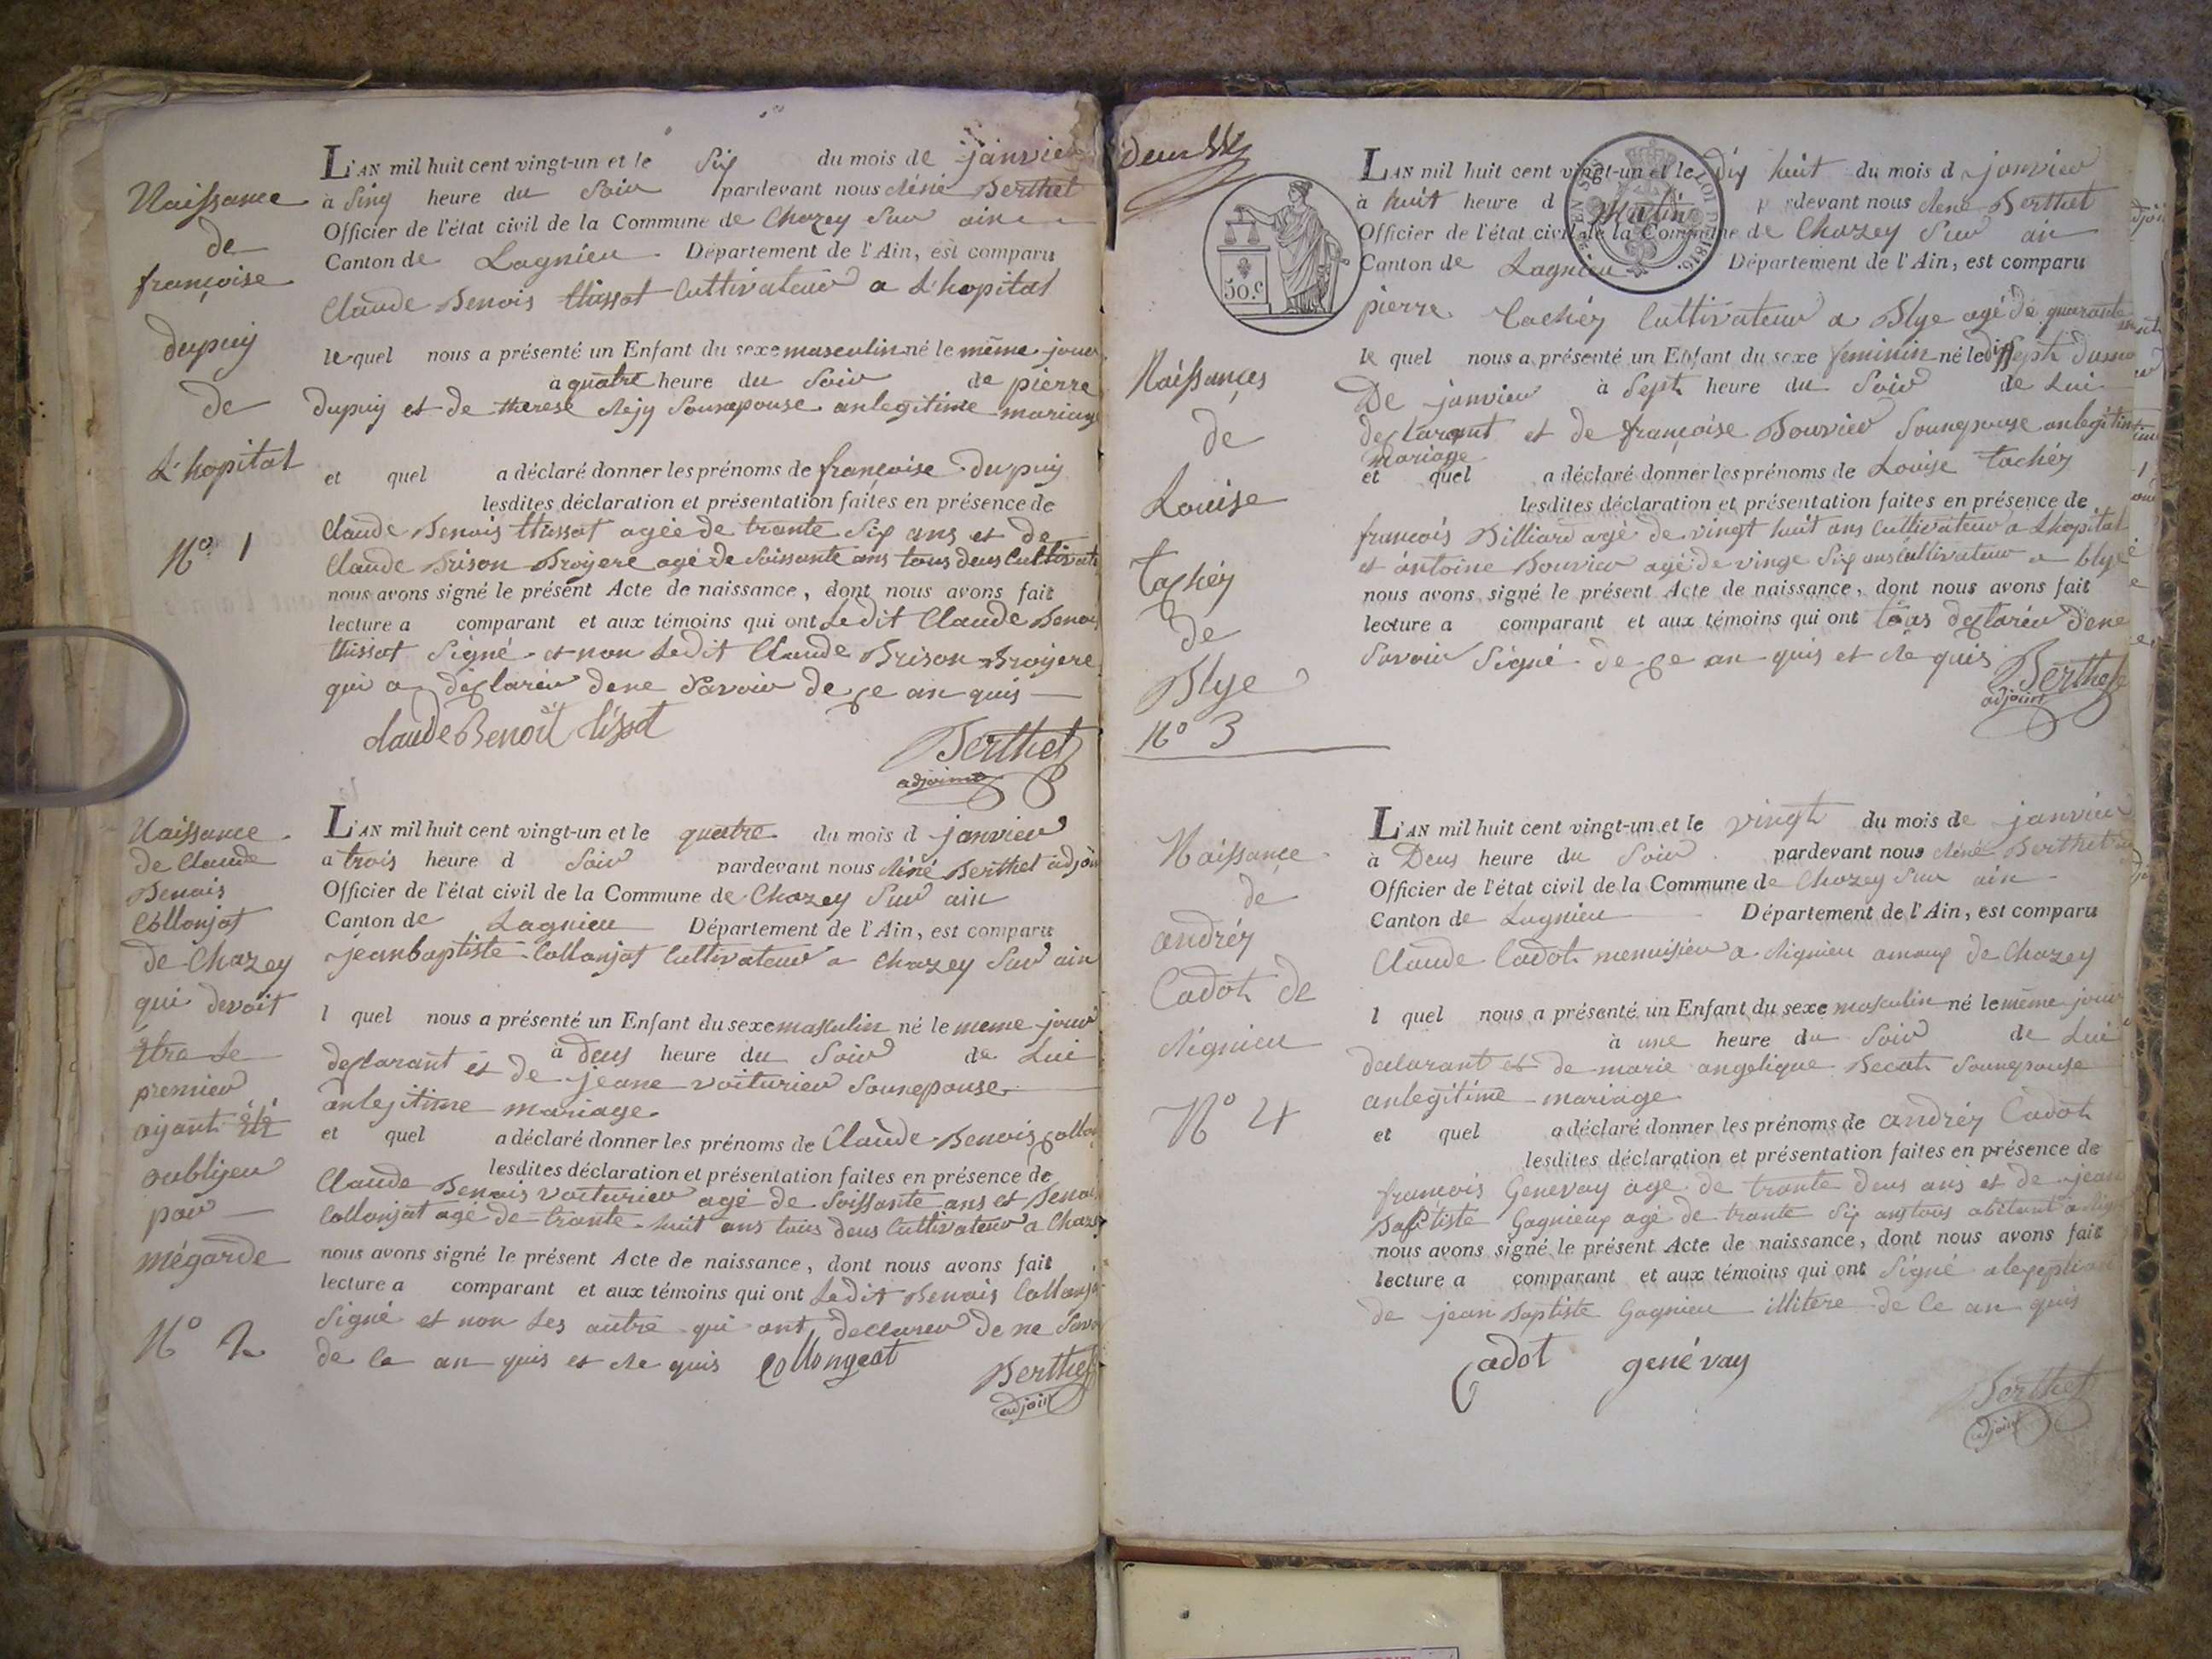 Naissance
de
françoise
dupuiy
de
L'hopital
No 1
L'AN mil huit cent vingt-un et le Six du mois de janvier
à Sinq heure du Soir pardevant nous Réné Berthet
Officier de l'état civil de la Commune de Chazey Sur ain
Canton de Lagnieu Département de l'Ain, est comparu
Claude Benois thissot Cultivateur a L'hopital
le quel nous a présenté un Enfant du sexe masculin né le même jour
à quatre heure du Soir de pierre
dupuiy et de therese Rejy Sounepouse anlegitime mariage
et quel a déclaré donner les prénoms de françoise dupuiy
lesdites déclaration et présentation faites en présence de
Claude Benois thissot agée de trante Six ans et de
Claude Brison Broyere agé de Soissante ans tous deus Cultivate
nous avons signé le présent Acte de naissance, dont nous avons fait
lecture a comparant et aux témoins qui ont Ledit Claude Benois
thissot Signé et non Ledit Claude Brison Broyere
qui a déclaréu dene Savoir de ce an quis
claude Benoit tissot
Berthet
adjoint
Naissance
de Claude
Benois
Collonjat
de Chazey
qui devoit
être Le
premier
ayant été
oublijeu
par
mégarde
No 2
L'AN mil huit cent vingt-un et le quatre du mois d janvier
a trois heure d Soir pardevant nous Réné Berthet adjoin
Officier de l'état civil de la Commune de Chazey Sur ain
Canton de Lagnieu Département de l'Ain, est comparu
jeanbaptiste Collonjat Cultivateur a Chazey Sur ain
l quel nous a présenté un Enfant du sexe masculin né le meme jour
à deus heure du Soir de Lui
déclarant et de jeane voiturier Sounepouse
anlegitime mariage
et quel a déclaré donner les prénoms de Claude Benois Collon
lesdites déclaration et présentation faites en présence de
Claude Benois voiturier agé de Soissante ans et Benois
Collonjat agé de trante huit ans tous deus Cultivateur a Chazey
nous avons signé le présent Acte de naissance, dont nous avons fait
lecture a comparant et aux témoins qui ont Ledit Benois Collonja
Signé et non Les autre qui ont declareu de ne Savo
de Ce an quis et Re quis Collongeat
Berthet
adjoint
deux
50.c
LOI DE 1816.
Naissances
de
Louise
Tachéy
de
Blye
No 3
L'AN mil huit cent vingt-un et le Dix huit du mois d janvier
à huit heure d Matin pardevant nous Réné Berthet
Officier de l'état civil de la Commune de Chazey Sur ain
Canton de Lagnieu Département de l'Ain, est comparu
pierre Tachéy Cultivateur a Blye agé de quarante
le quel nous a présenté un Enfant du sexe feminin né le dix Sept du mo
De janvier à Sept heure du Soir de Lui
declarant et de françoise Bouvier Sounepouse anlegitim
mariage
et quel a déclaré donner les prénoms de Louise tachéy
lesdites déclaration et présentation faites en présence de
francois Billiard agé de vingt huit ans Cultivateur a Lhopital
et antoine Bouvier agé de vingt Six ans Cultivateur a blye
nous avons signé le présent Acte de naissance, dont nous avons fait
lecture a comparant et aux témoins qui ont tous declaréu dene
Savoir Signé de ce an quis et Re quis
Berthet
adjoint
Naissance
de
andréy
Cadot de
Rignieu
No 4
L'AN mil huit cent vingt-un et le vingt du mois de janvier
à Deus heure du Soir pardevant nous Réné Berthet
Officier de l'état civil de la Commune de Chazey Sur ain
Canton de Lagnieu Département de l'Ain, est comparu
Claude Cadot menuisieu a Rignieu amaux de Chazey
l quel nous a présenté un Enfant du sexe masculin né le même jour
à une heure du Soir de Lui
declarant et de marie angelique Decat Sounepouse
anlegitime mariage
et quel a déclaré donner les prénoms de andréy Cadot
lesdites déclaration et présentation faites en présence de
francois Genevay age de trante deus ans et de jean
Baptiste Gagnieux agé de trante Six ans tous abitant a
nous avons signé le présent Acte de naissance, dont nous avons fait
lecture a comparant et aux témoins qui ont Signé
de jean Baptiste Gagnieu illitere de Ce an quis
Cadot genévay
Berthet
adjoint